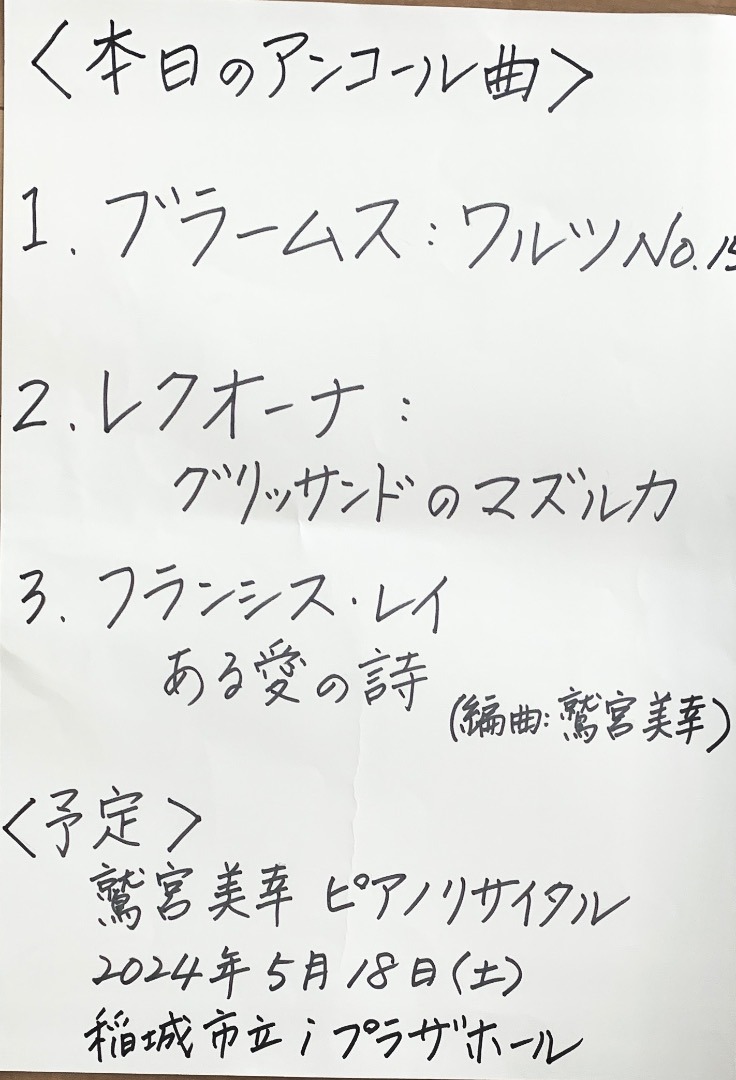 〈本日のアンコール曲〉
1. ブラームス:ワルツNo.15
2. レクオーナ:
グリッサンドのマズルカ
3. フランシス・レイ
ある愛の詩
(編曲:鷲宮美幸)
〈予定〉
鷲宮美幸 ピアノリサイタル
2024年5月18日(土)
稲城市立iプラザホール